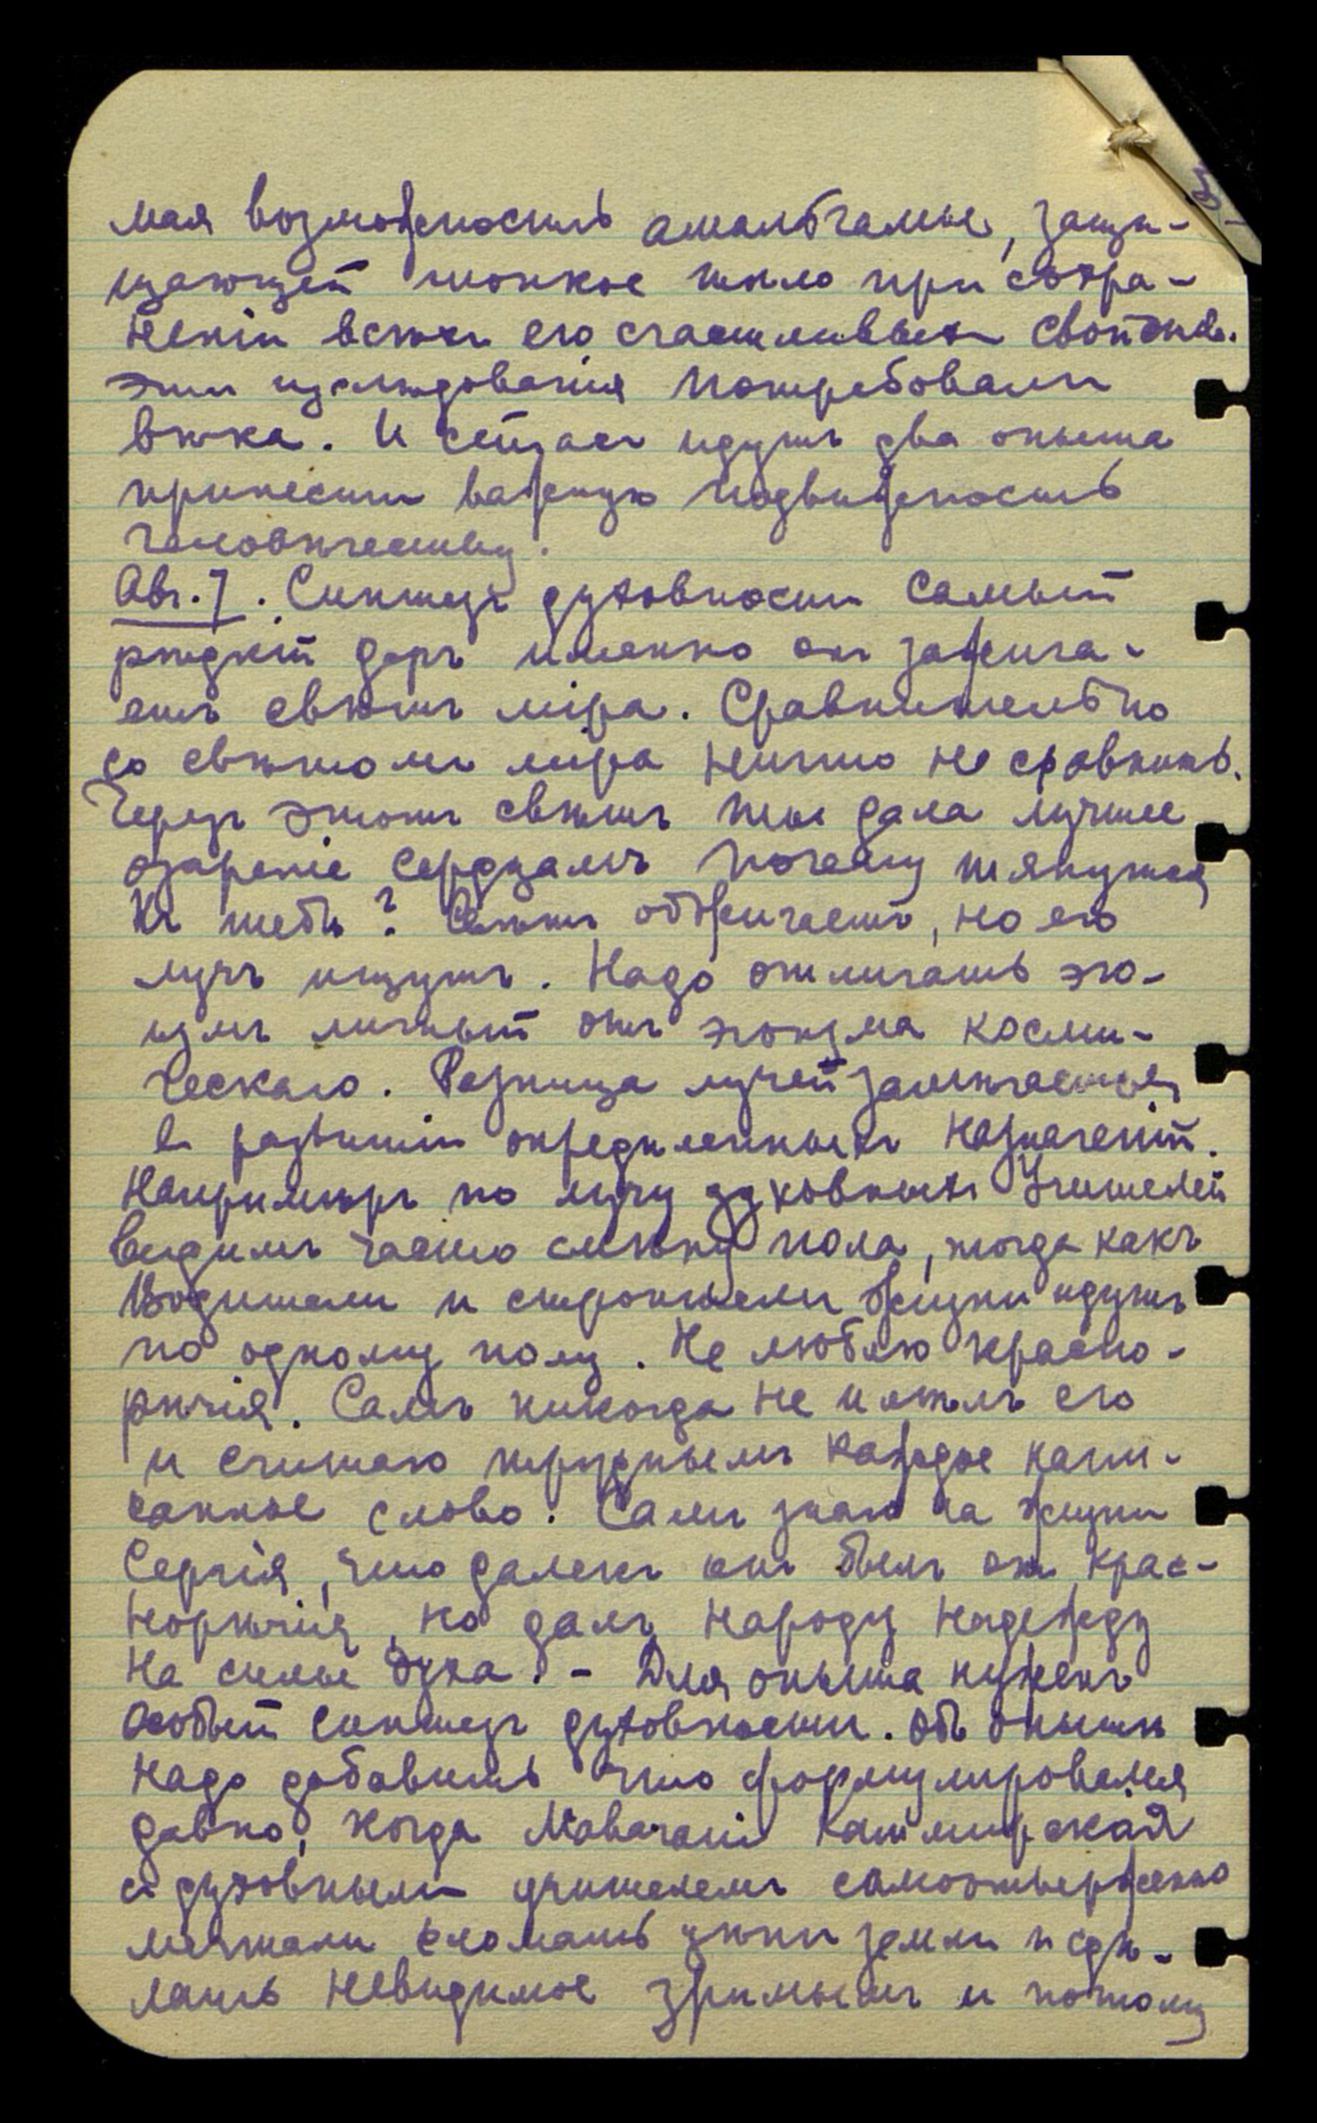 мая возможность амальгамы, защи-
щающей тонкое тѣло при сохра-
неніи всѣхъ его счастливыхъ свойствъ.
Эти изслѣдованія потребовали
вѣка. И сейчасъ идутъ два опыта
принести важную подвижность
человѣчеству.
Авг. 7. Синтезъ духовности самый
рѣдкій даръ именно он зажига-
етъ свѣтъ міра. Сравнительно
со свѣтомъ міра ничто не сравнить.
Черезъ этотъ свѣтъ ты дала лучшее
озареніе сердцамъ почему тянутся
къ тебѣ? Свѣтъ обжигаетъ, но его
лучъ ищутъ. Надо отличать эго-
измъ личный отъ эгоизма косми-
ческаго. Разница лучей замѣчается
в развитіи опредѣленныхъ назначеній.
Напримѣръ по лучу духовныхъ Учителей
видимъ часто смѣну пола, тогда какъ
Водители и строители жизни идутъ
по одному полу. Не люблю красно-
рѣчія. Самъ никогда не имѣлъ его
и считаю труднымъ каждое напи-
санное слово. Самъ знаю на жизни
Сергія, что далекъ онъ былъ от крас-
норѣчія, но далъ народу надежду
на силы духа. - Для опыта нуженъ
особый синтезъ духовности. Объ опытѣ
надо добавить что формулировался
давно, когда Кашмирская
съ духовнымъ учителемъ самоотверженно
мечтали сломать цѣпи земли и сдѣ-
лать невидимое зримымъ и потому